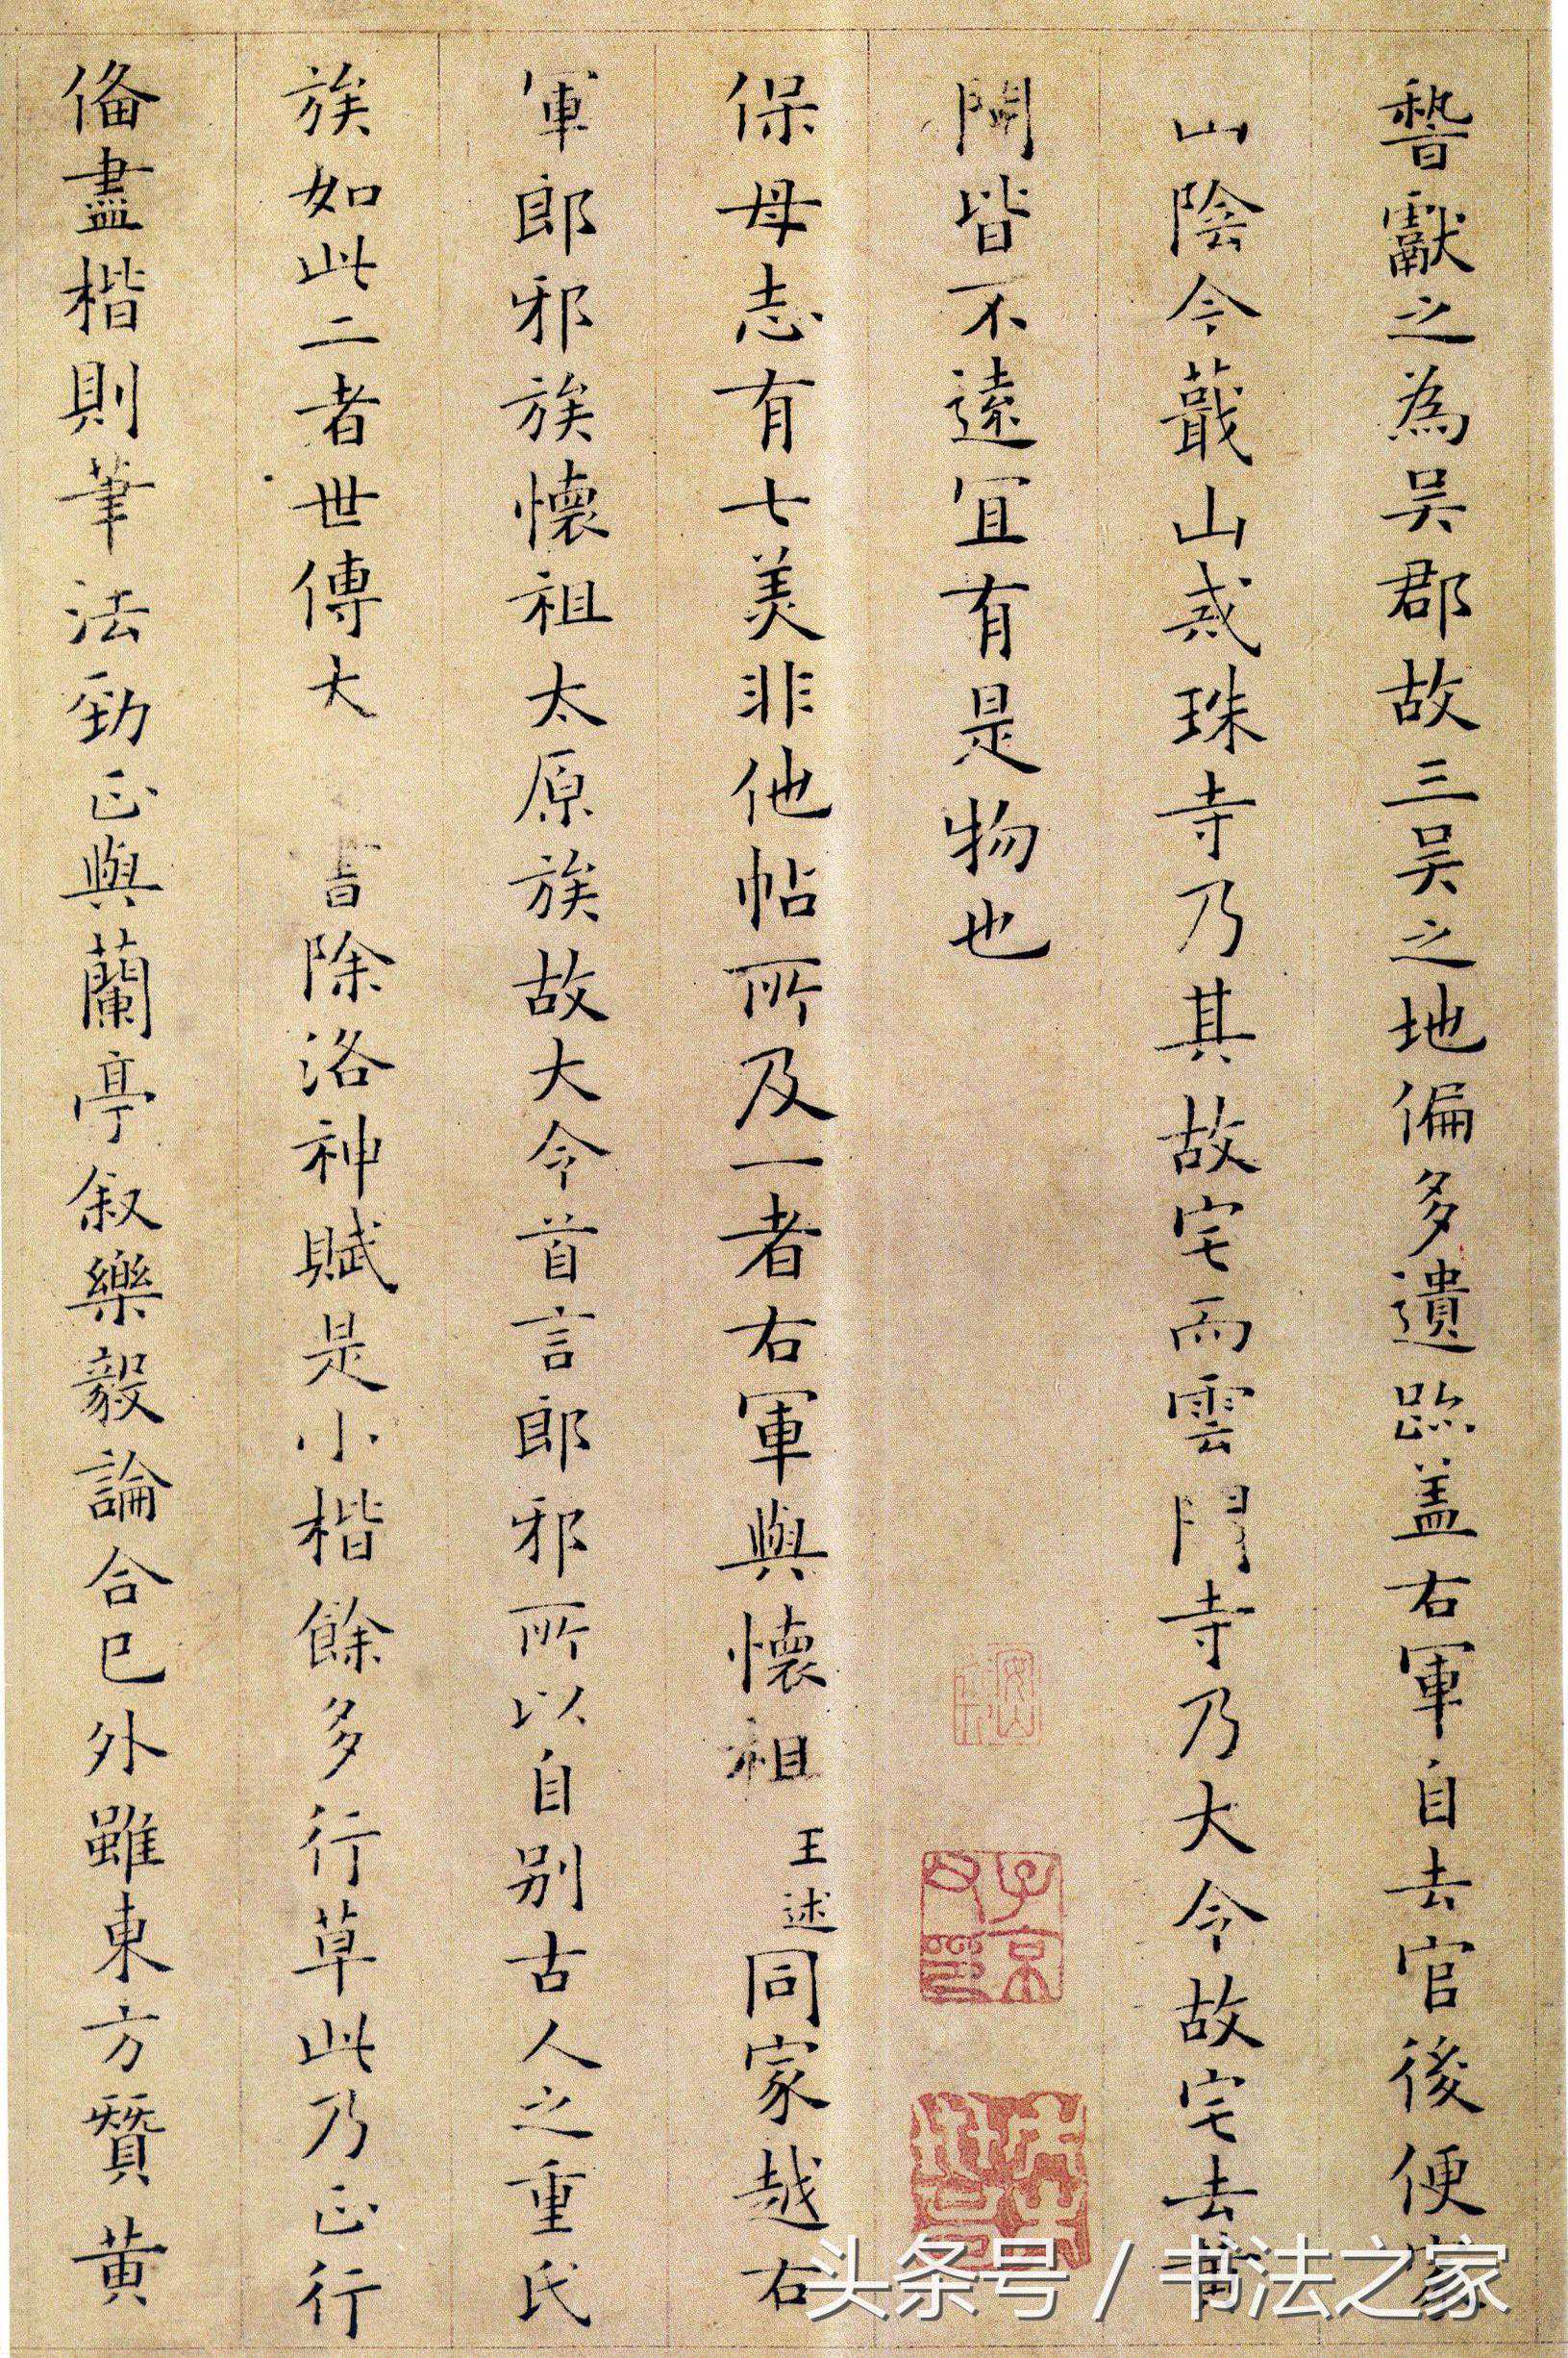 晉獻之為吳郡故三吳之地偏多遺跡盖右軍自去官後便家
山陰今蕺山戒珠寺乃其故宅而雲門寺乃大令故宅去黃
閍皆不遠宜有是物也
保母志有七美非他帖所及一者右軍與懷祖王述同家越右
軍郎邪族懷祖太原族故大令首言郎邪所以自别古人之重氏
族如此二者世傳大 書除洛神賦是小楷餘多行草此乃正行
俻盡楷則筆法勁正與蘭亭叙樂毅論合已外雖東方贊黄
头条号 / 书法之家